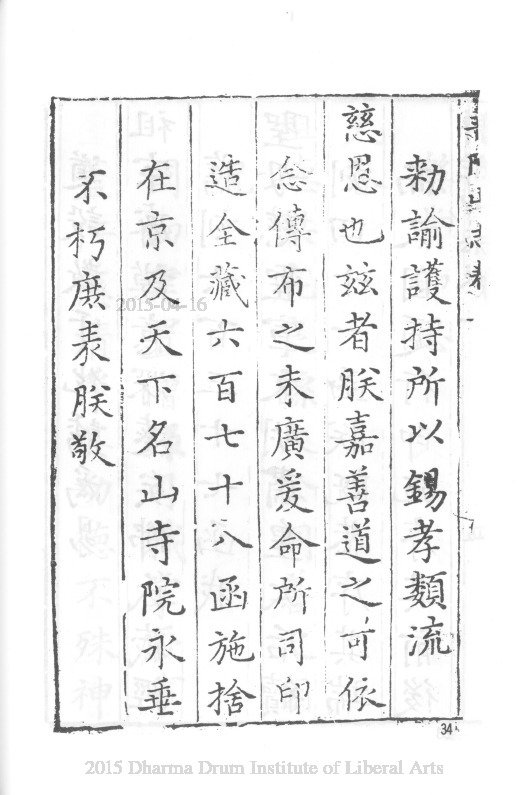 勅諭護持所以錫孝類流
慈恩也玆者朕嘉善道之可依
念傳布之未廣爰命所司印
造全藏六百七十八函施捨
在京及天下名山寺院永垂
不朽庶表朕敬
34
2015-04-16
2015 Dharma Drum Institute of Liberal Arts